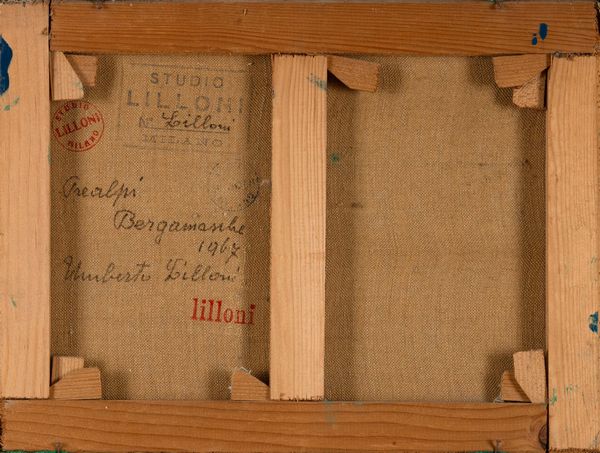 STUDIO
LILLONI
N° Lilloni
MILANO
STUDIO
LILLONI
MILANO
Prealpi
Bergamasche
1967
Umberto Lilloni
lilloni